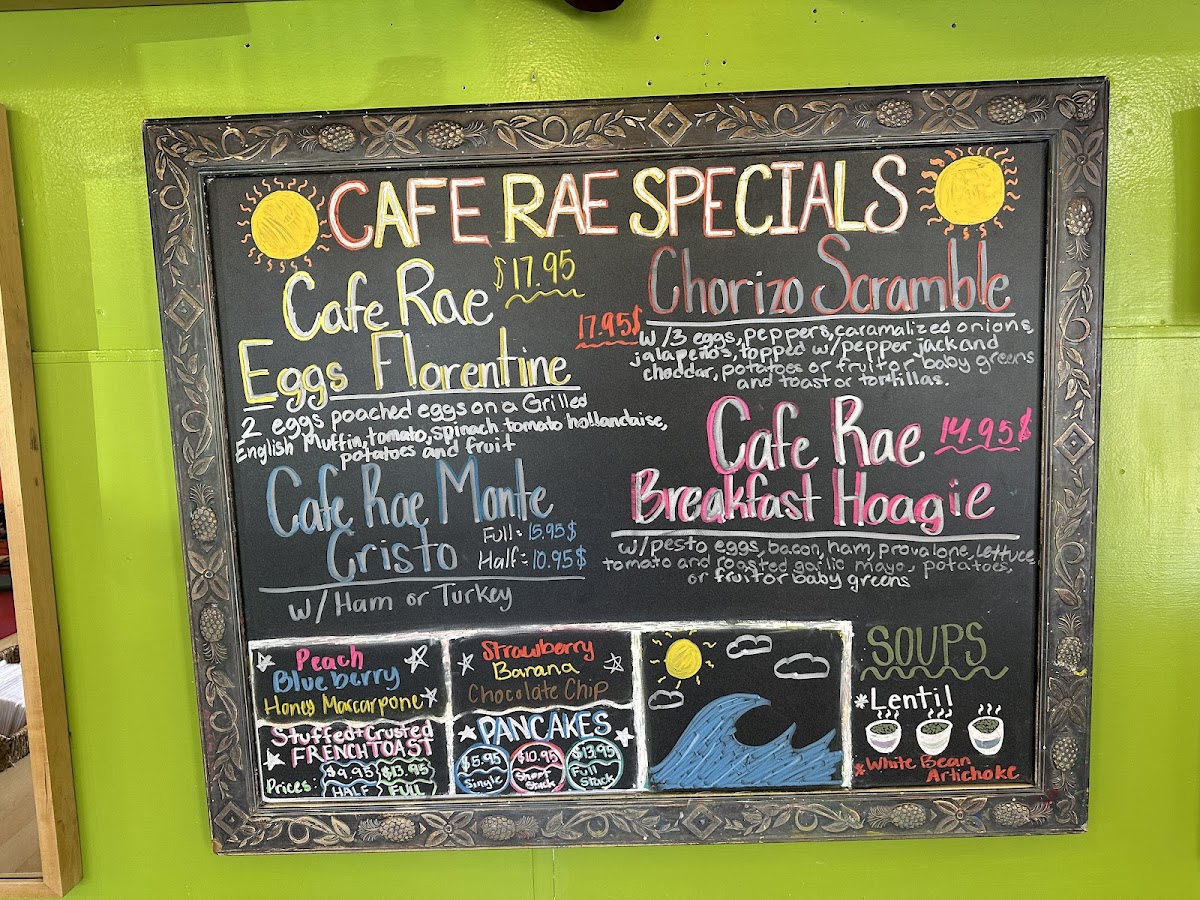 CAFE RAE SPECIALS
Cafe Rae $17.95
Eggs Florentine
2 eggs poached eggs on a Grilled
English Muffin, tomato, spinach tomato hollandaise,
potatoes and fruit
Cafe Rae Monte
Cristo
Full: 15.95$
Half: 10.95$
w/Ham or Turkey
Chorizo Scramble
17.95$
w/3 eggs, peppers, caramalized onions,
jalapeños, topped w/pepper jack and
cheddar, potatoes or fruit or baby greens
and toast or tortillas.
Cafe Rae 14.95$
Breakfast Hoagie
w/pesto eggs, bacon, ham, provalone, lettuce,
tomato and roasted garlic mayo, potatoes,
or fruit or baby greens
Peach
Blueberry
Honey Marcarpone
Stuffed+Crusted
FRENCH TOAST
Prices: $9.95 HALF $13.95 FULL
Strawberry
Banana
Chocolate Chip
PANCAKES
$5.95 Single
$10.95 Short Stack
$13.95 Full Stack
SOUPS
*Lentil
*White Bean
Artichoke